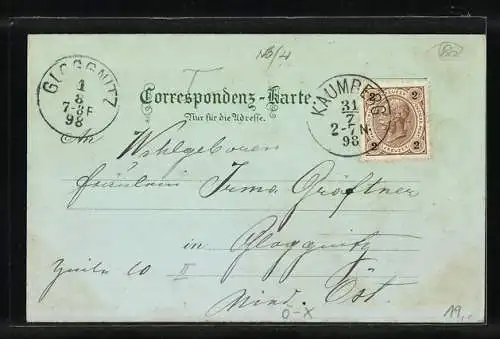 GLOGGNITZ
1
8
7-8F
98
Correspondenz-Karte.
Nur für die Adresse.
KAUMBERG
31
7
2-7N.
98
2 2
2 2
An Wohlgeboren
Fräulein Irma Gröftner
in Gloggnitz
Zeile 60 II
Nied. Öst.
O-X
19,-